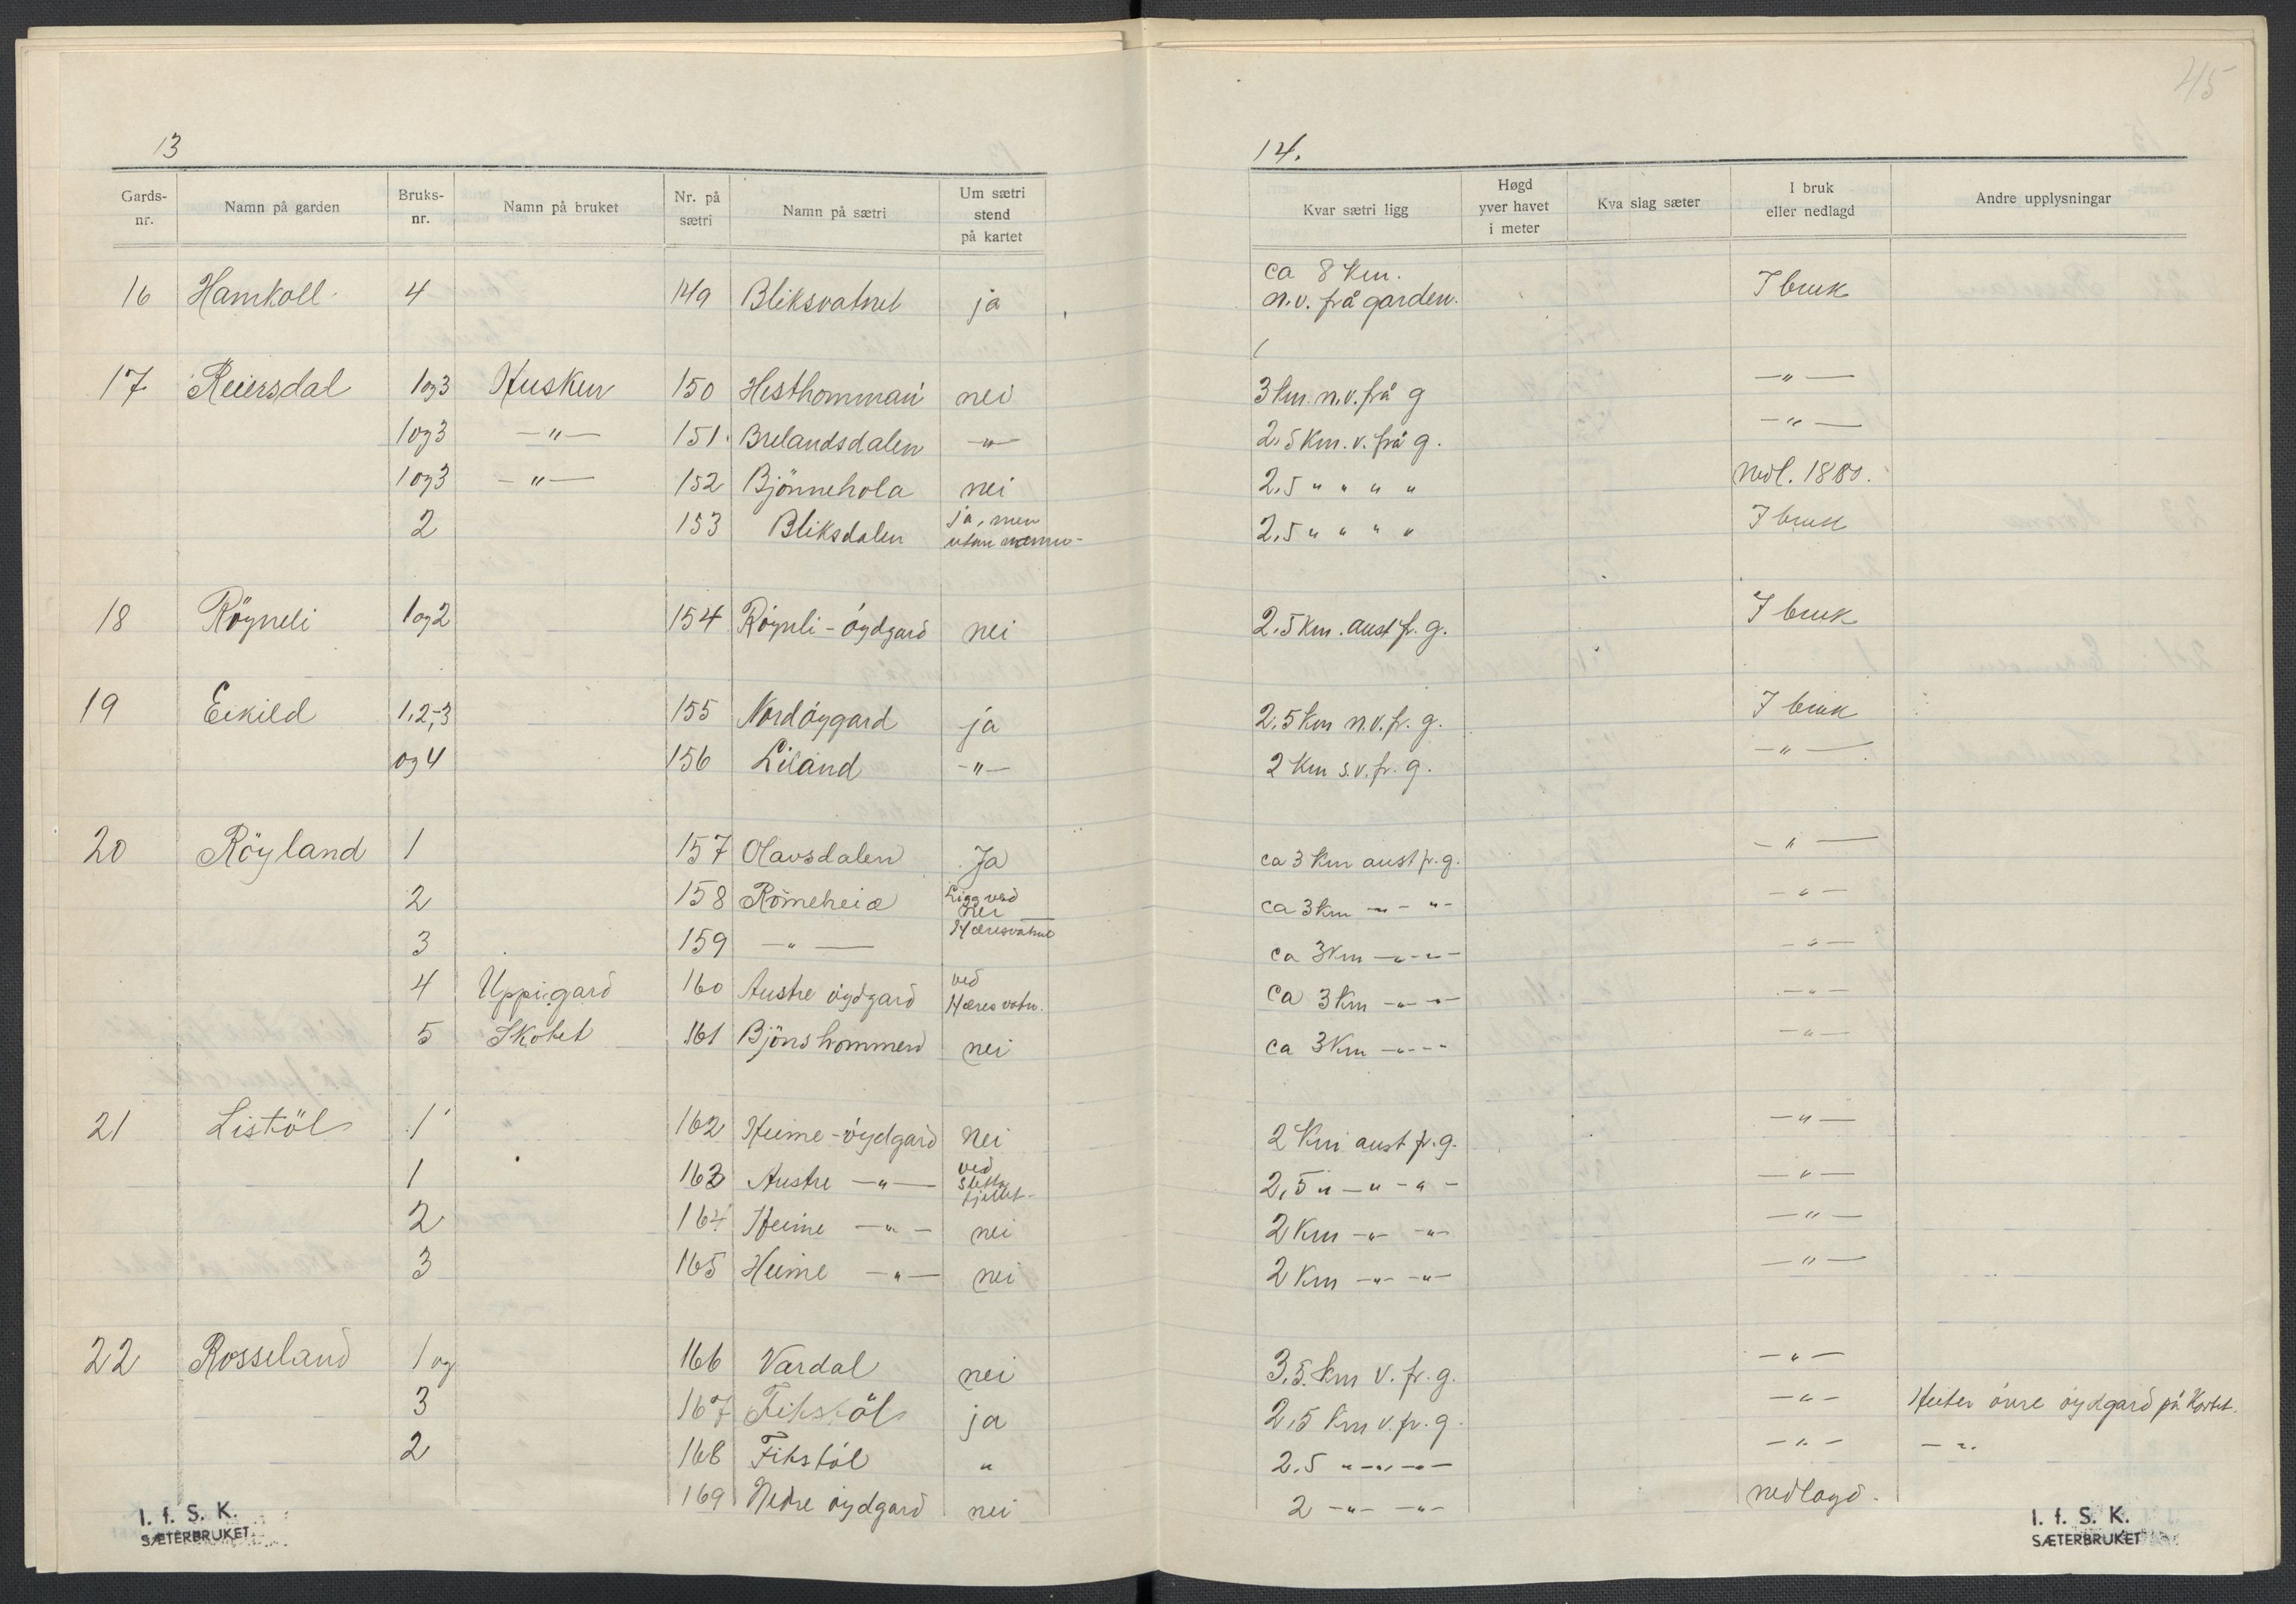 45
13
Gards-nr. Namn på garden Bruks-nr. Namn på bruket Nr. på sætri Namn på sætri Um sætri stend på kartet
16 Hamkoll 4 149 Bliksvatnet ja
17 Reiersdal 1og3 Husken 150 Hesthomman nei
1og3 —"— 151. Brelandsdalen —"—
1og3 —"— 152 Bjönnehola nei
2 153 Bliksdalen ja, men utan namn-
18 Röyneli 1og2 154 Röynli-öydgard nei
19 Eikild 1,2,3 155 Nordöygard ja
og 4 156 Liland —"—
20 Röyland 1 157 Olavsdalen Ja
2 158 Römeheia Ligg ved nei
3 159 —"— Hæresvatnet
4 Uppigard 160 Austre öydgard ved Hæresvatn.
5 Skotet 161 Bjönshommen nei
21 Listöl 1 162 Heime-öydgard nei
1 163 Austre —"— ved
2 164 Heime —"— nei
3 165 Heime —"— nei
22 Rosseland 1 og 166 Vardal nei
3 167 Fikstöl ja
2 168 Fikstöl "
169 Nedre öydgard nei
I. f. S. K.
SÆTERBRUKET
14.
Kvar sætri ligg Høgd yver havet i meter Kva slag sæter I bruk eller nedlagd Andre upplysningar
ca 8 km.
n.v. frå garden. I bruk
3 km. n.v. frå g —"—
2,5 km. v. frå g. —"—
2,5 " " " " nedl. 1880.
2,5 " " " " I bruk
2,5 km. aust fr. g. I bruk
2,5 km n.v. fr. g. I bruk
2 km s.v. fr. g. —"—
ca 3 km aust fr. g. —"—
ca 3 km —"— "— —"—
ca 3 km —"—"— —"—
ca 3 km —"—"— —"—
ca 3 km —"—"— —"—
2 km aust fr. g. —"—
2,5 " —"—"— —"—
2 km —"— —"— —"—
2 km —"— —"— —"—
3,5 km v. fr. g. —"—
2,5 km v. fr. g. —"— Heiter övre öydgard på Kartet.
2,5 "—"—"— —"— —"—
2 —"— —"— nedlagd.
I. f. S. K.
SÆTERBRUKET